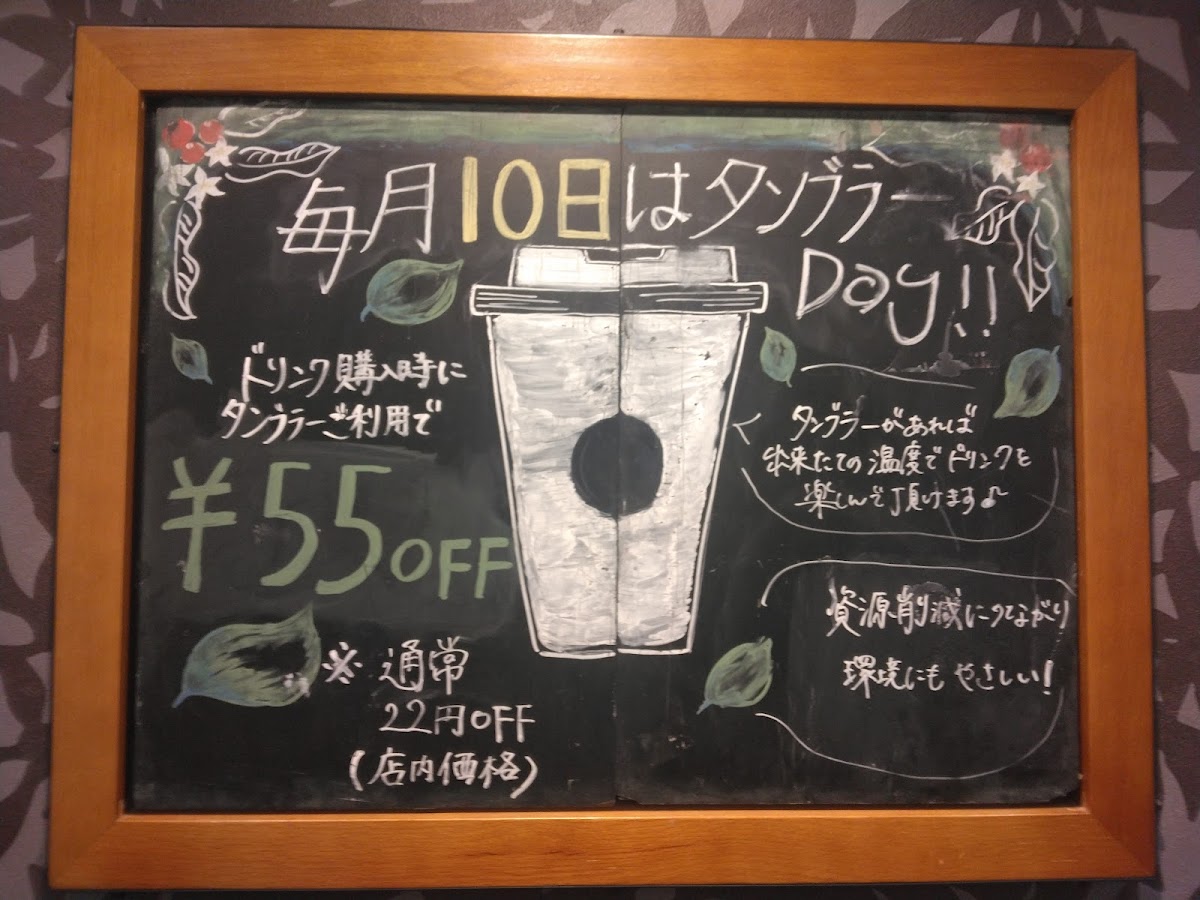 毎月10日はタンブラー
Day!!
ドリンク購入時に
タンブラーご利用で
¥55OFF
※通常
22円OFF
(店内価格)
タンブラーがあれば
出来たての温度でドリンクを
楽しんで頂けます♪
資源削減につながり
環境にもやさしい!